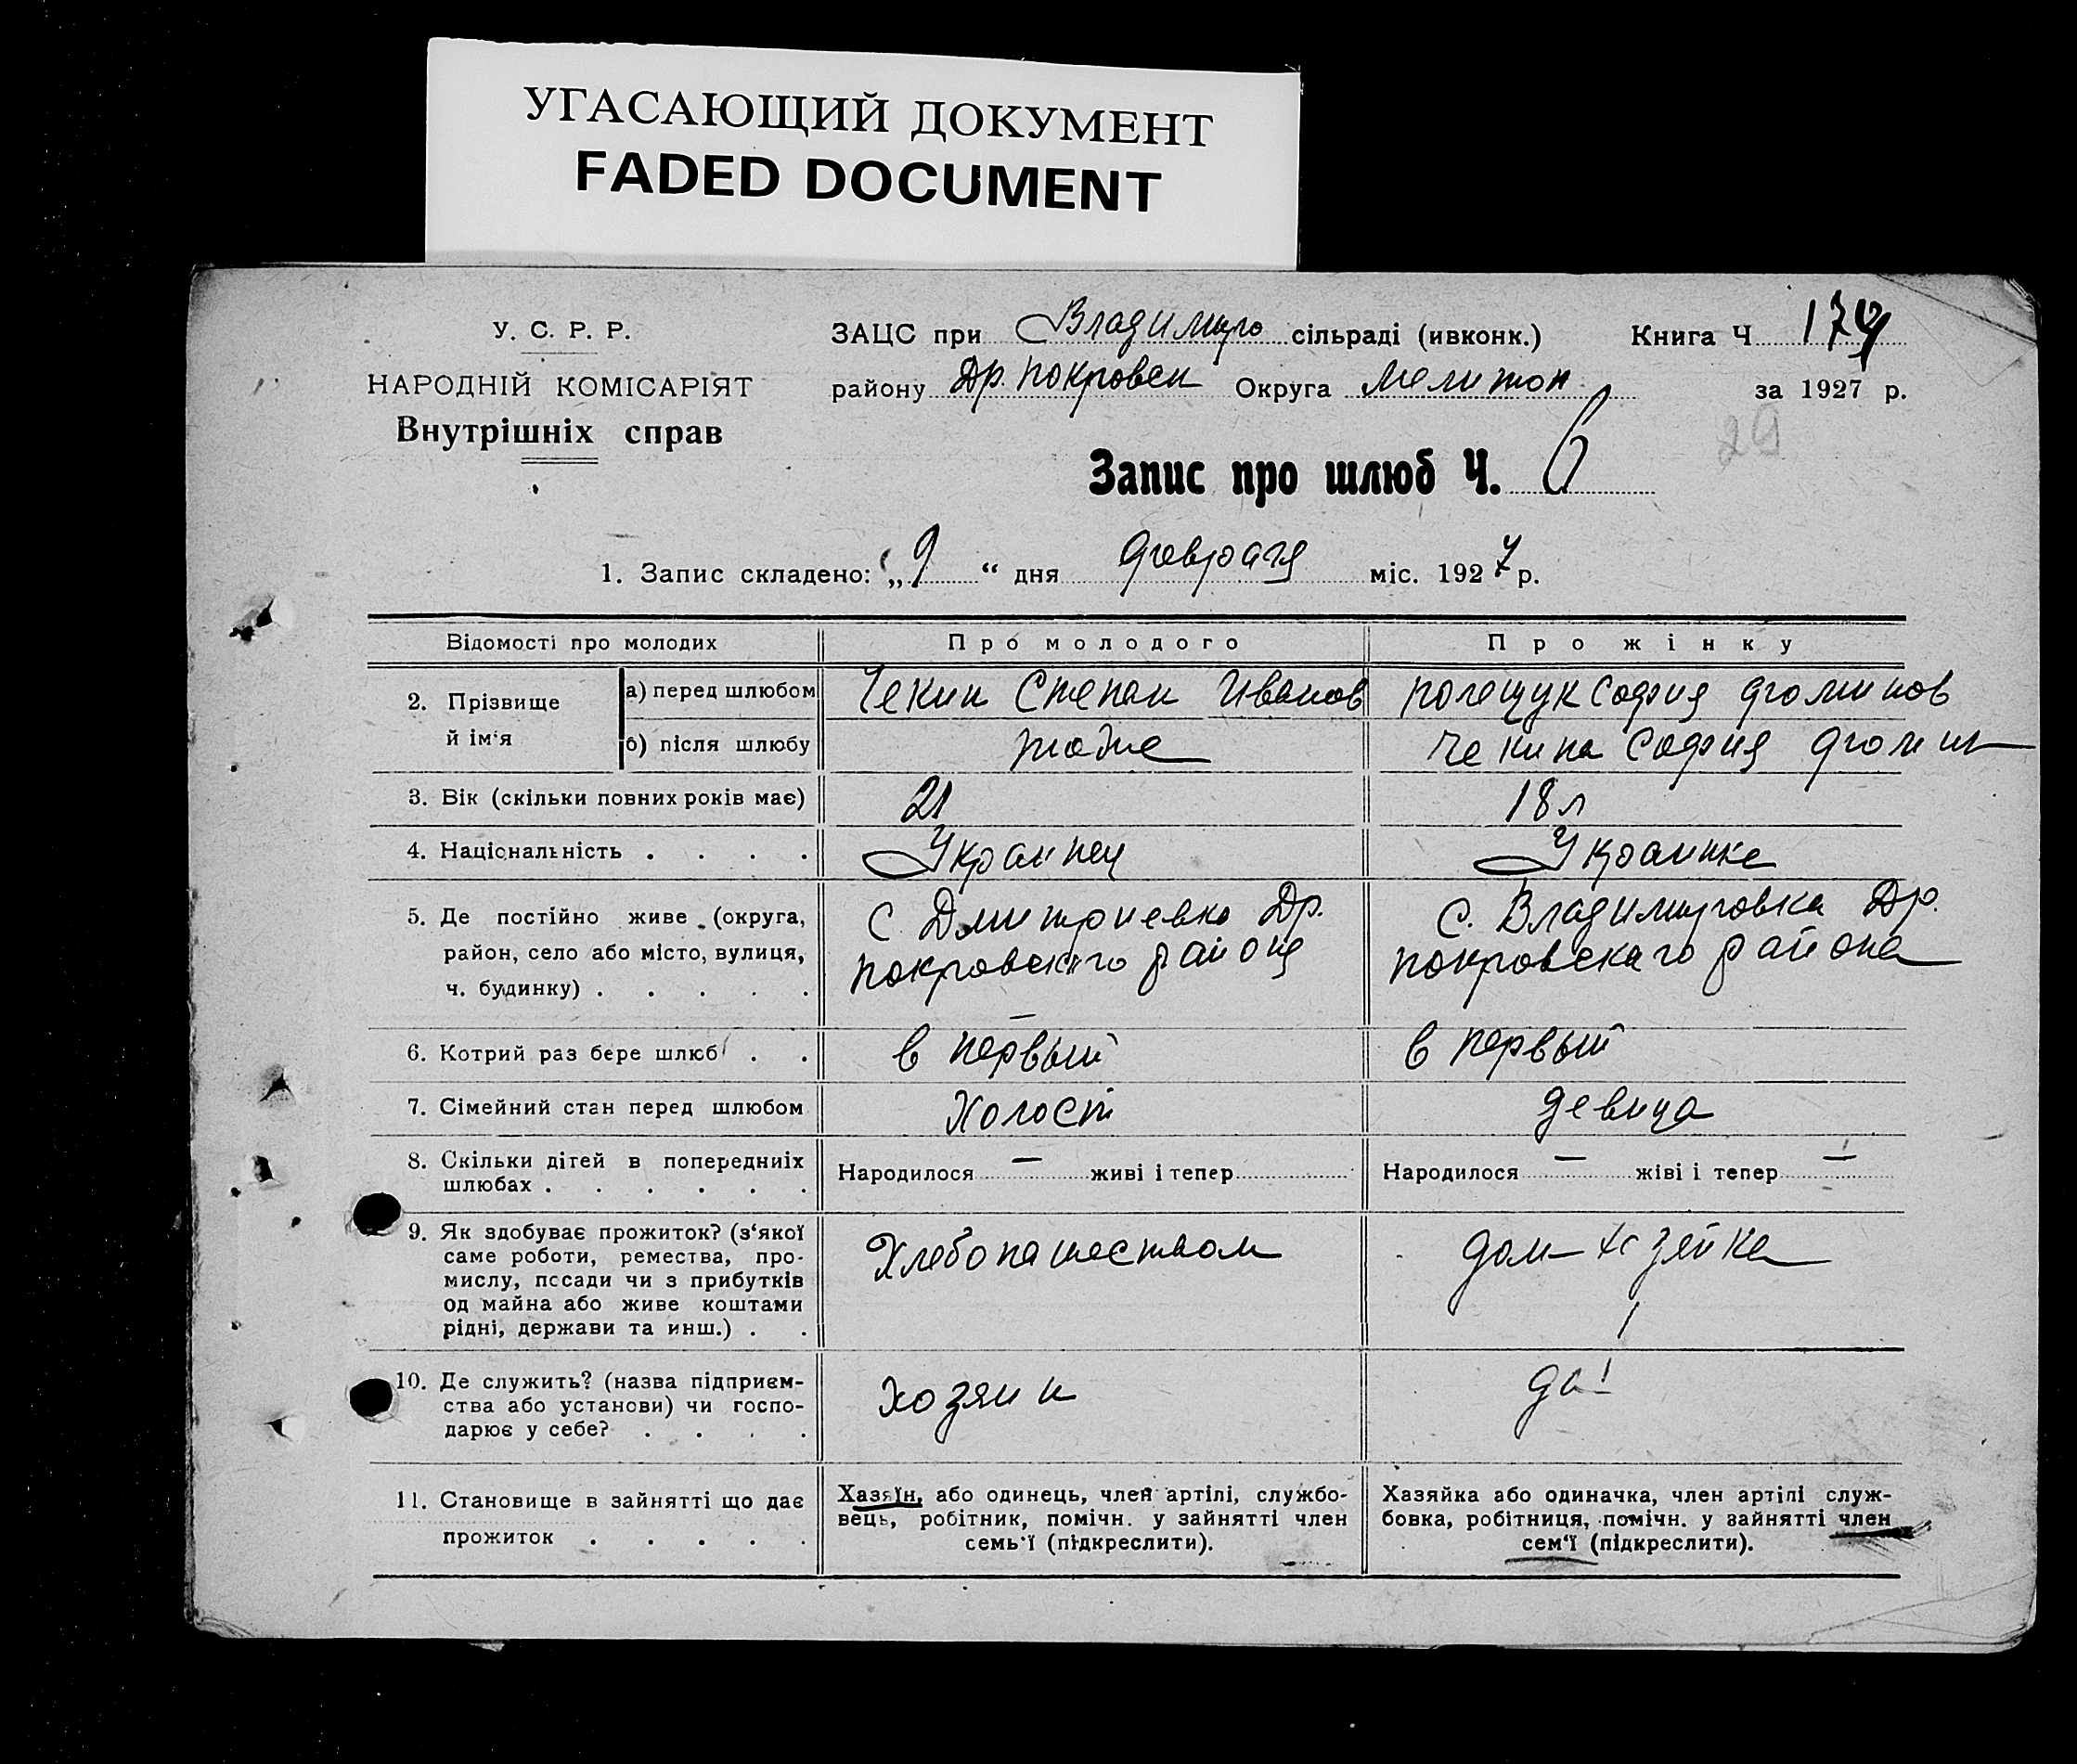 УГАСАЮЩИЙ ДОКУМЕНТ
FADED DOCUMENT
У. С. Р. Р.
НАРОДНІЙ КОМІСАРІЯТ
Внутрішніх справ
ЗАЦС при Владимиро сільраді (ивконк.) Книга Ч
району Др. Покровск Округа Мелитоп за 1927 р.
29
Запис про шлюб Ч. 6
1. Запис складено: „9“ дня февраля міс. 1927 р.
Відомості про молодих Про молодого Про жінку
2. Прізвище й ім‘я
а) перед шлюбом Чекин Степан Иванов Полещук София Фоминов
б) після шлюбу тоже Чекина София Фомин
3. Вік (скільки повних років має) 21 18 л
4. Національність . . . . Украинец Украинка
5. Де постійно живе (округа, район, село або місто, вулиця, ч. будинку) . . . . .
С. Дмитриевка Др.
Покровскаго района
С. Владимировка Др.
Покровскаго района
6. Котрий раз бере шлюб . . в первый в первый
7. Сімейний стан перед шлюбом Холост девица
8. Скільки дітей в попередниіх
шлюбах . . . . . .
Народилося — живі і тепер
Народилося — жіві і тепер —
9. Як здобуває прожиток? (з‘якої
саме роботи, ремества, про-
мислу, посади чи з прибутків
од майна або живе коштами
рідні, держави та инш.) . .
Хлебопашеством
дом хозяйка
10. Де служить? (назва підприєм-
ства або установи) чи госпо-
дарює у себе? . . . .
хозяин
11. Становище в зайнятті що дає
прожиток . . . . .
Хазяїн, або одинець, член артілі, службо-
вець, робітник, помічн. у зайнятті член
семь‘ї (підкреслити).
Хазяйка або одиначка, член артілі служ-
бовка, робітниця, помічн. у зайнятті член
сем‘ї (підкреслити).